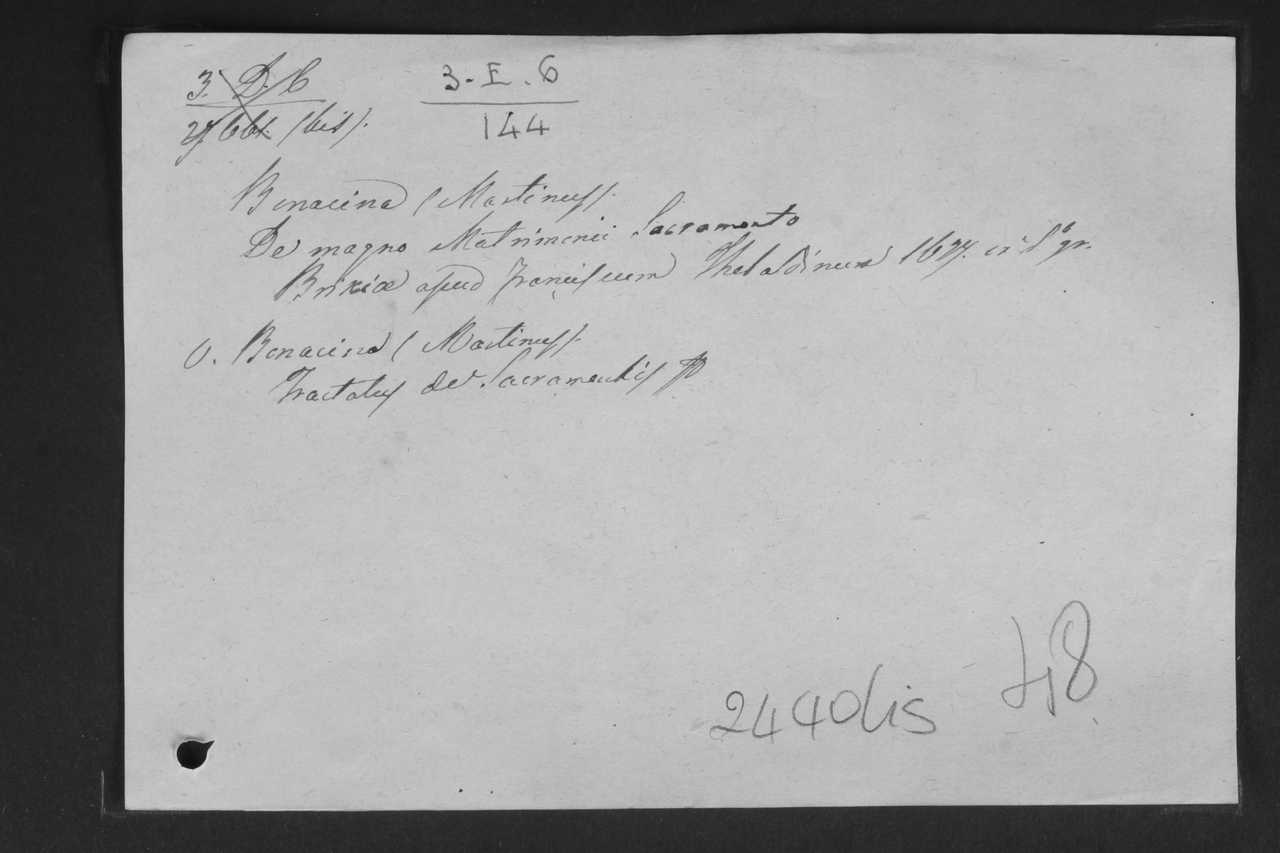 3. D. 6 3-E.6
(bis). 144
Bonacina (Martinus).
De magno Matrimonii Sacramento
Brixiæ apud Franciscum Thebaldinum in 8º gr.
V. Bonacina (Martinus).
Tractatus de Sacramentis
2440bis 48